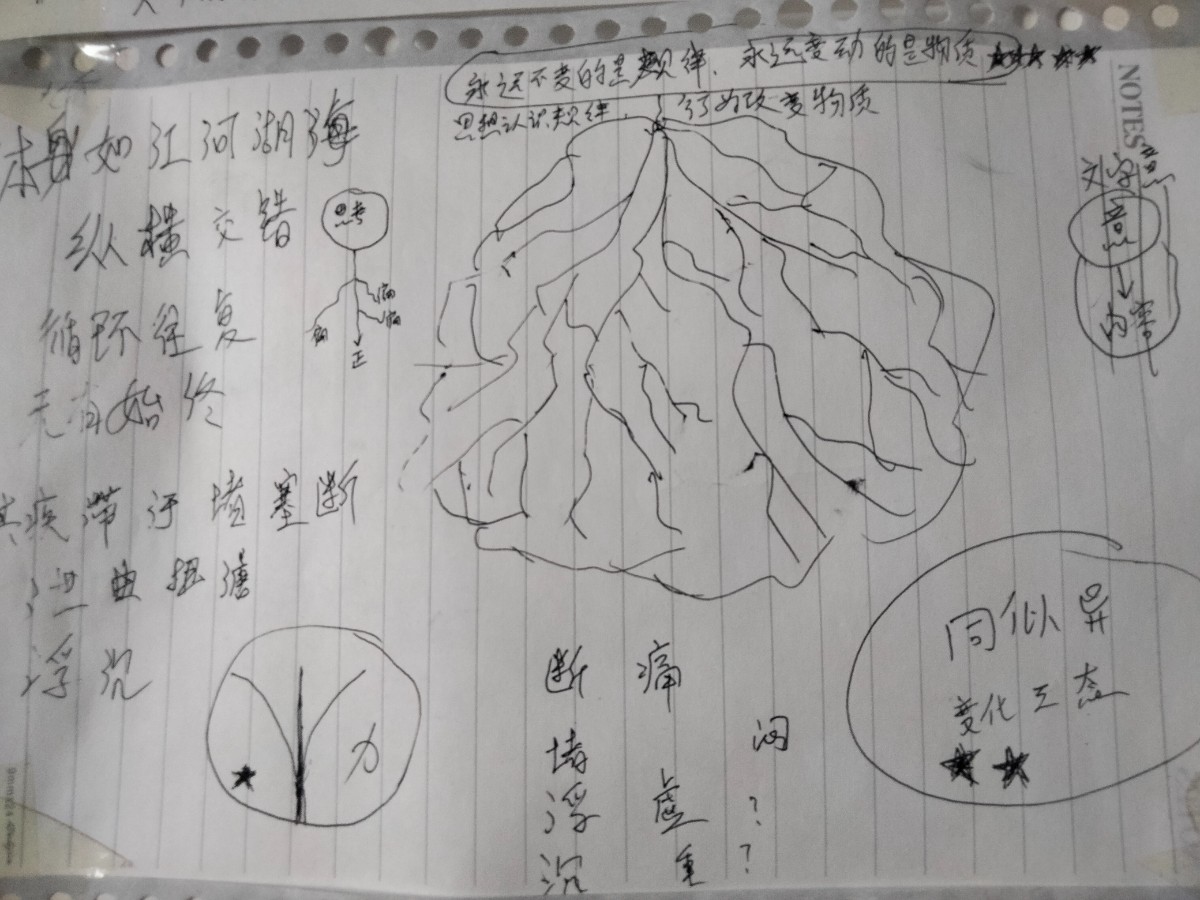 永远不变的是规律、永远变动的是物质
思想认识规律、行为改变物质
NOTES
体身如江河湖海
纵横交错
循环往复
无有始终
其疾滞污堵塞断
曲扭
浮沉
思考
病
病
病
正
文字
内容
力
同似异
变化 态
断 痛
堵 闷
浮 虚 ?
沉 重 ?